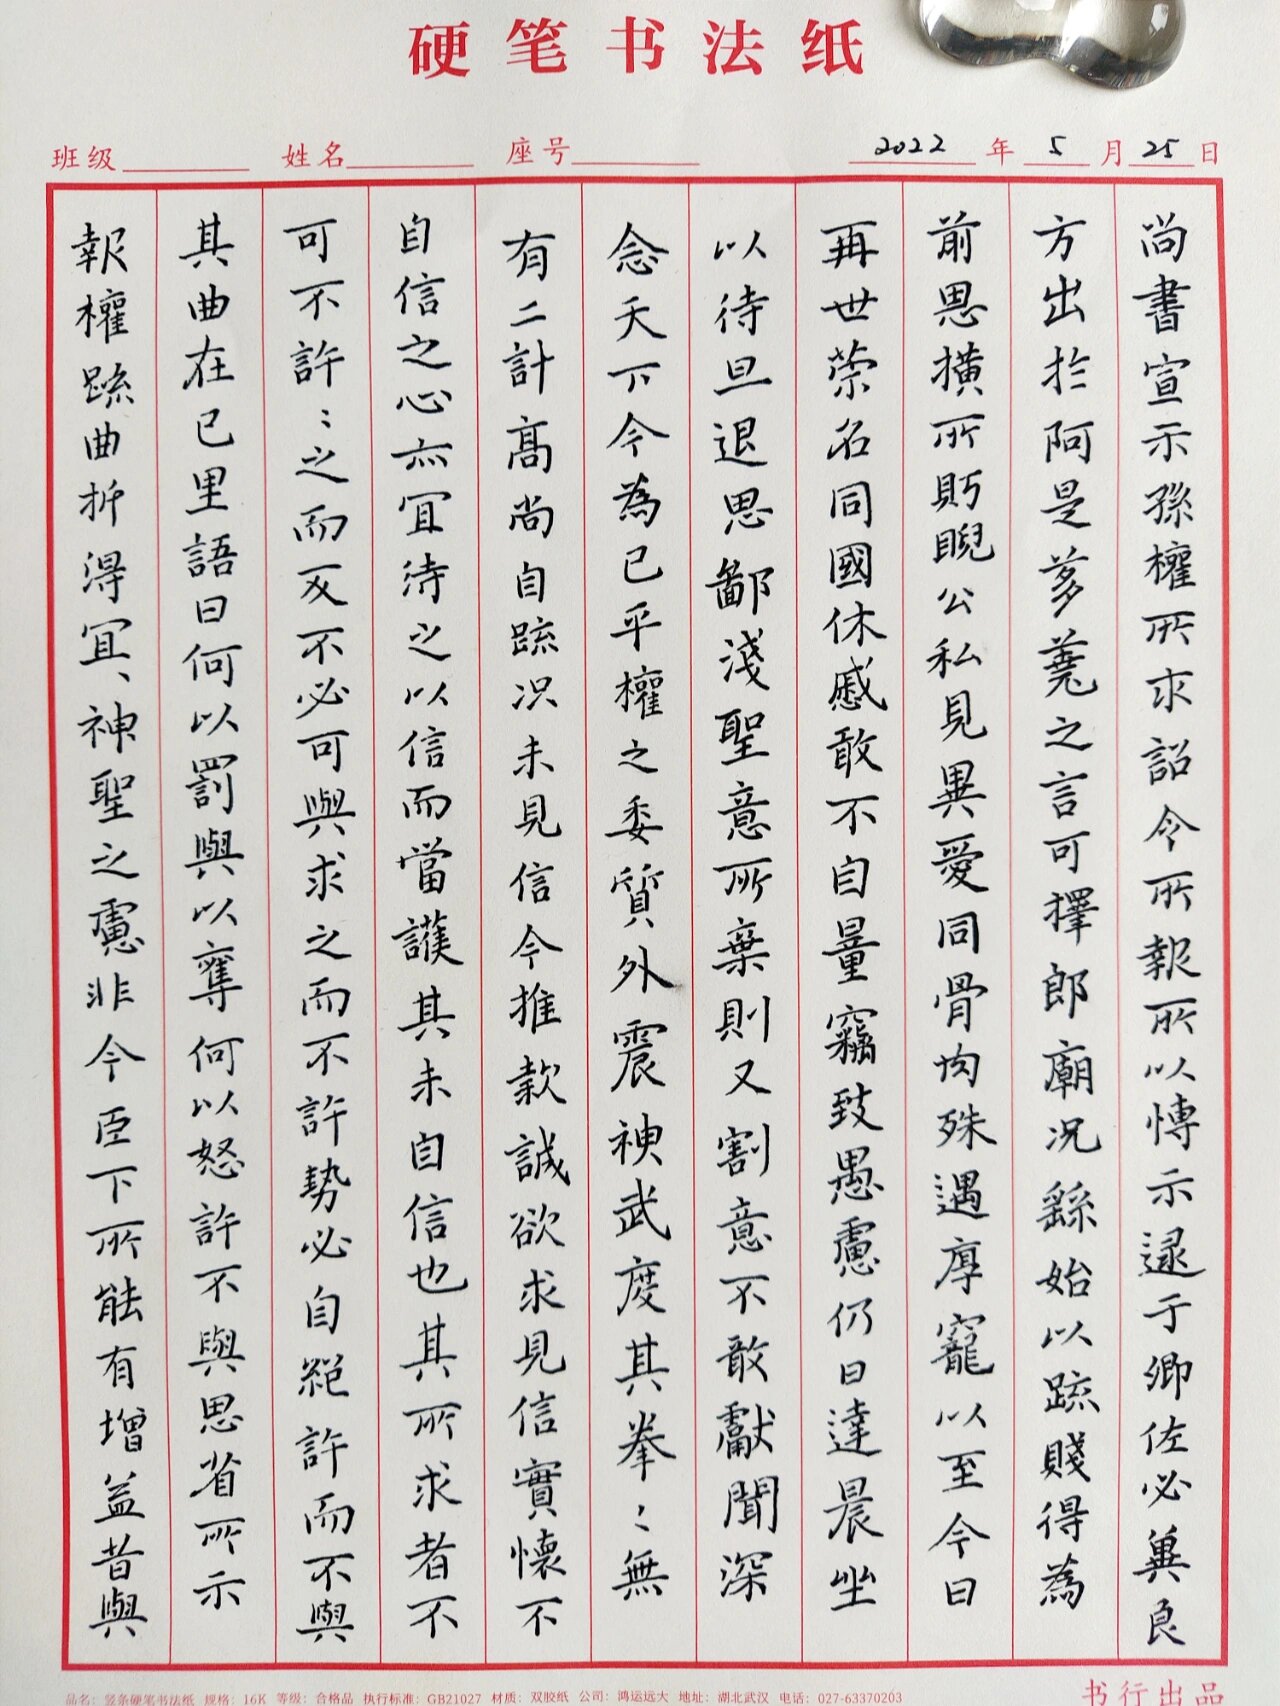 硬笔书法纸
班级 姓名 座号 2022年5月25日
尚書宣示孫權所求詔令所報所以博示逮于卿佐必冀良
方出於阿是芻蕘之言可擇郎廟況繇始以疏賤得為
前恩橫所眄睨公私見異愛同骨肉殊遇厚寵以至今日
再世榮名同國休慼敢不自量竊致愚慮仍日達晨坐
以待旦退思鄙淺聖意所棄則又割意不敢獻聞深
念天下今為已平權之委質外震神武度其拳〻無
有二計高尚自疏況未見信今推款誠欲求見信實懷不
自信之心亦宜待之以信而當護其未自信也其所求者不
可不許〻之而反不必可與求之而不許勢必自絕許而不與
其曲在己里語曰何以罰與以奪何以怒許不與思省所示
報權疏曲折得宜、神聖之慮非今臣下所能有增益昔與
品名：竖条硬笔书法纸 规格：16K 等级：合格品 执行标准：GB21027 材质：双胶纸 公司：鸿运远大 地址：湖北武汉 电话：027-63370203
书行出品